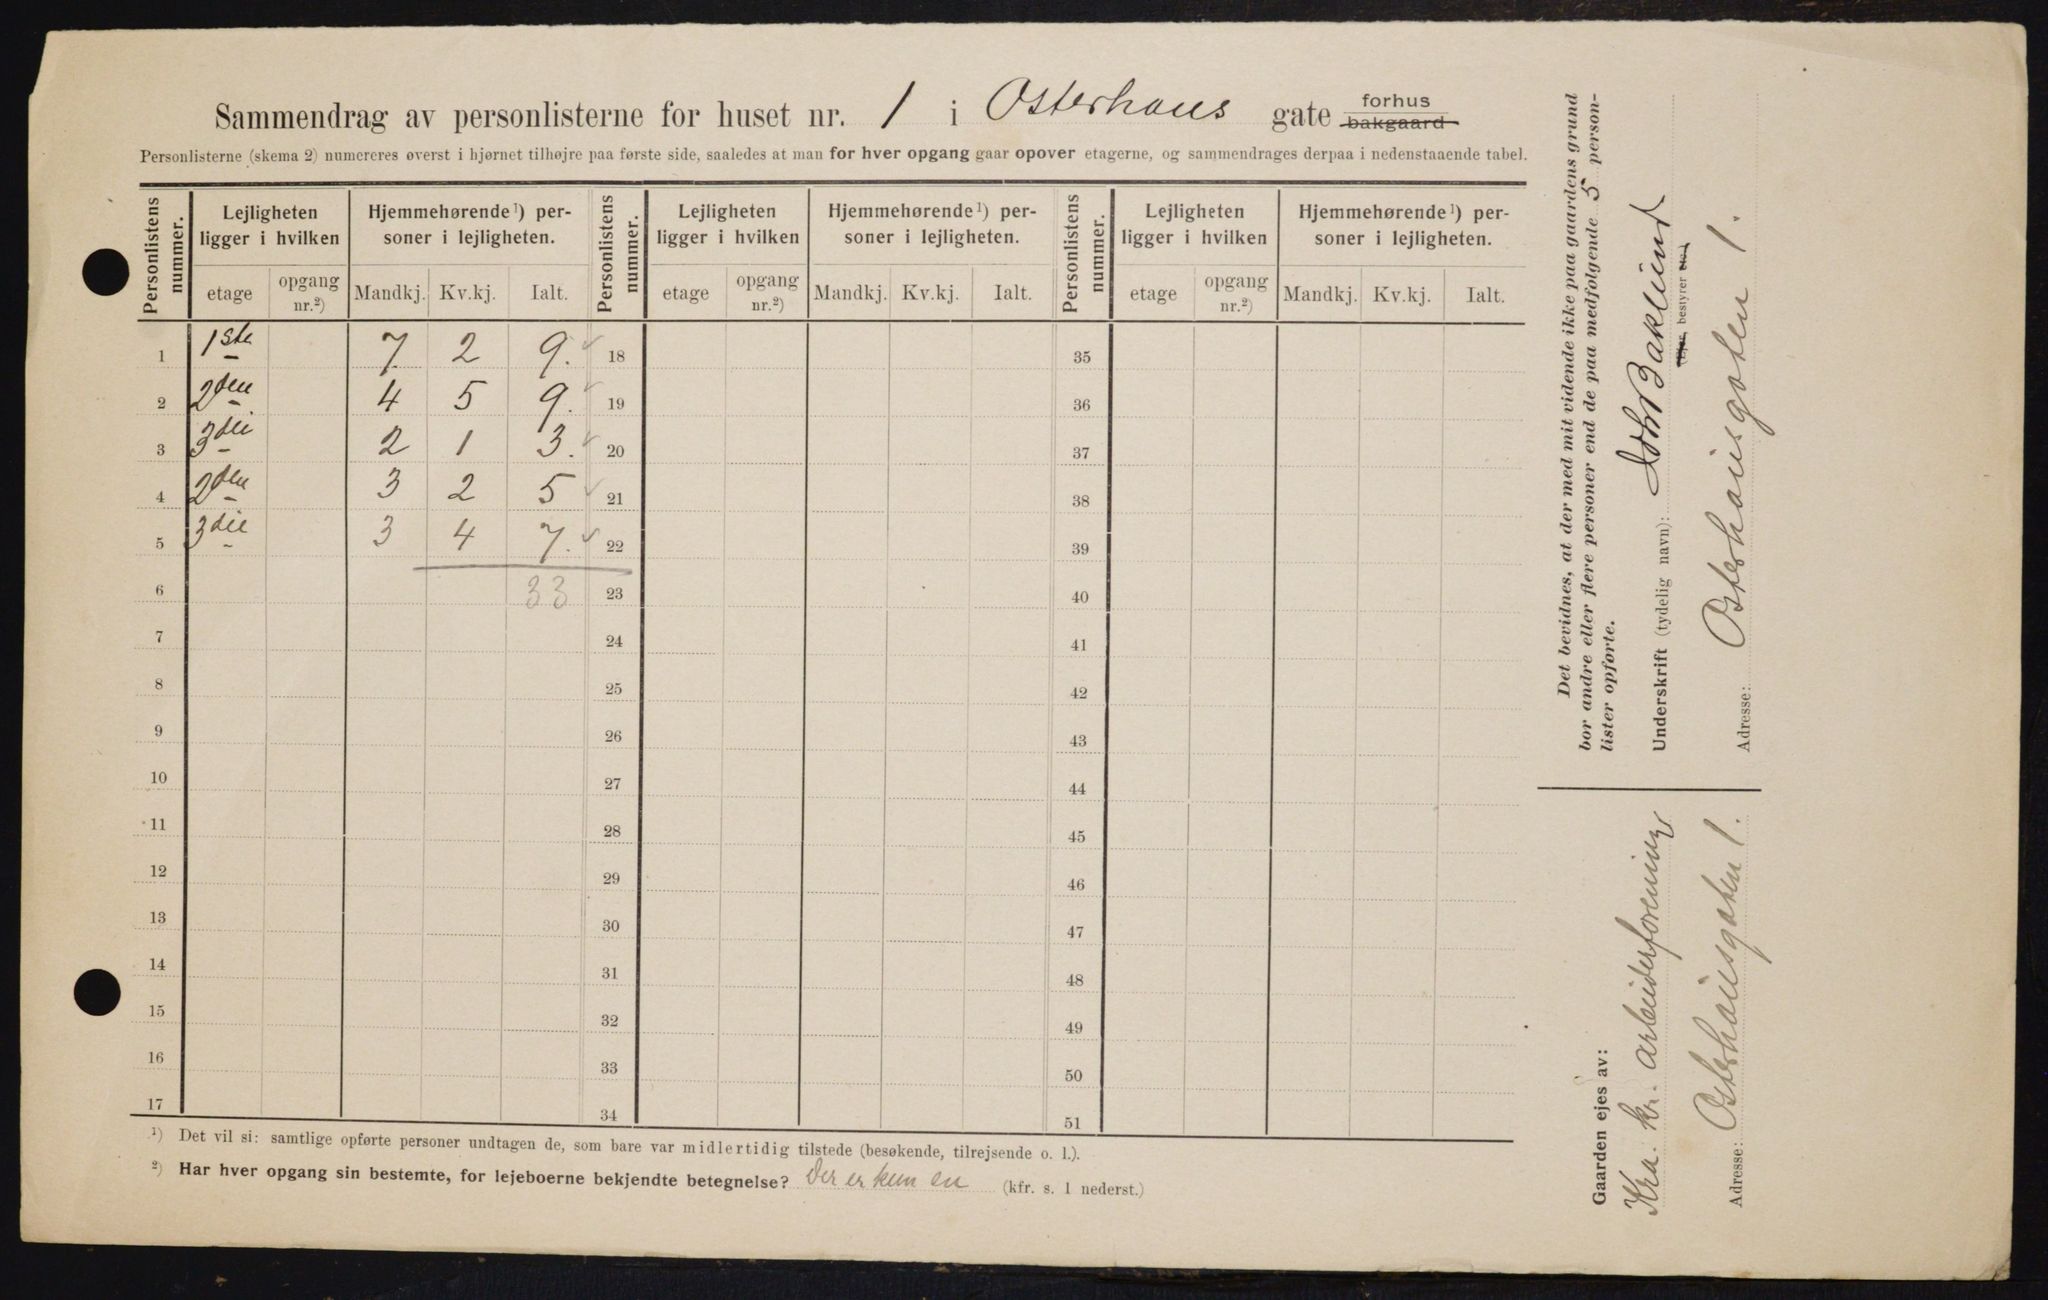 Sammendrag av personlisterne for huset nr. 1 i Osterhaus gate forhus bakgaard
Personlisterne (skema 2) numereres øverst i hjørnet tilhøjre paa første side, saaledes at man for hver opgang gaar opover etagerne, og sammendrages derpaa i nedenstaaende tabel.
Personlistens nummer. Lejligheten ligger i hvilken Hjemmehørende¹) personer i lejligheten. Personlistens nummer. Lejligheten ligger i hvilken Hjemmehørende¹) personer i lejligheten. Personlistens nummer. Lejligheten ligger i hvilken Hjemmehørende¹) personer i lejligheten.
etage opgang nr.²) Mandkj. Kv.kj. Ialt. etage opgang nr.²) Mandkj. Kv.kj. Ialt. etage opgang nr.²) Mandkj. Kv.kj. Ialt.
1 1ste 7 2 9. 18 35
2 2den 4 5 9. 19 36
3 3die 2 1 3. 20 37
4 2den 3 2 5 21 38
5 3die 3 4 7. 22 39
6 33 23 40
7 24 41
8 25 42
9 26 43
10 27 44
11 28 45
12 29 46
13 30 47
14 31 48
15 32 49
16 33 50
17 34 51
¹) Det vil si: samtlige opførte personer undtagen de, som bare var midlertidig tilstede (besøkende, tilrejsende o. l.).
²) Har hver opgang sin bestemte, for lejeboerne bekjendte betegnelse? Der er kun en (kfr. s. 1 nederst.)
Det bevidnes, at der med mit vidende ikke paa gaardens grund
bor andre eller flere personer end de paa medfølgende 5 person-
lister opførte.
Underskrift (tydelig navn): Baklund
(Ejer, bestyrer etc.)
Adresse: Osterhausgaten 1.
Gaarden ejes av:
Kra. kr. arbeiderforening
Adresse: Osterhausgaten 1.